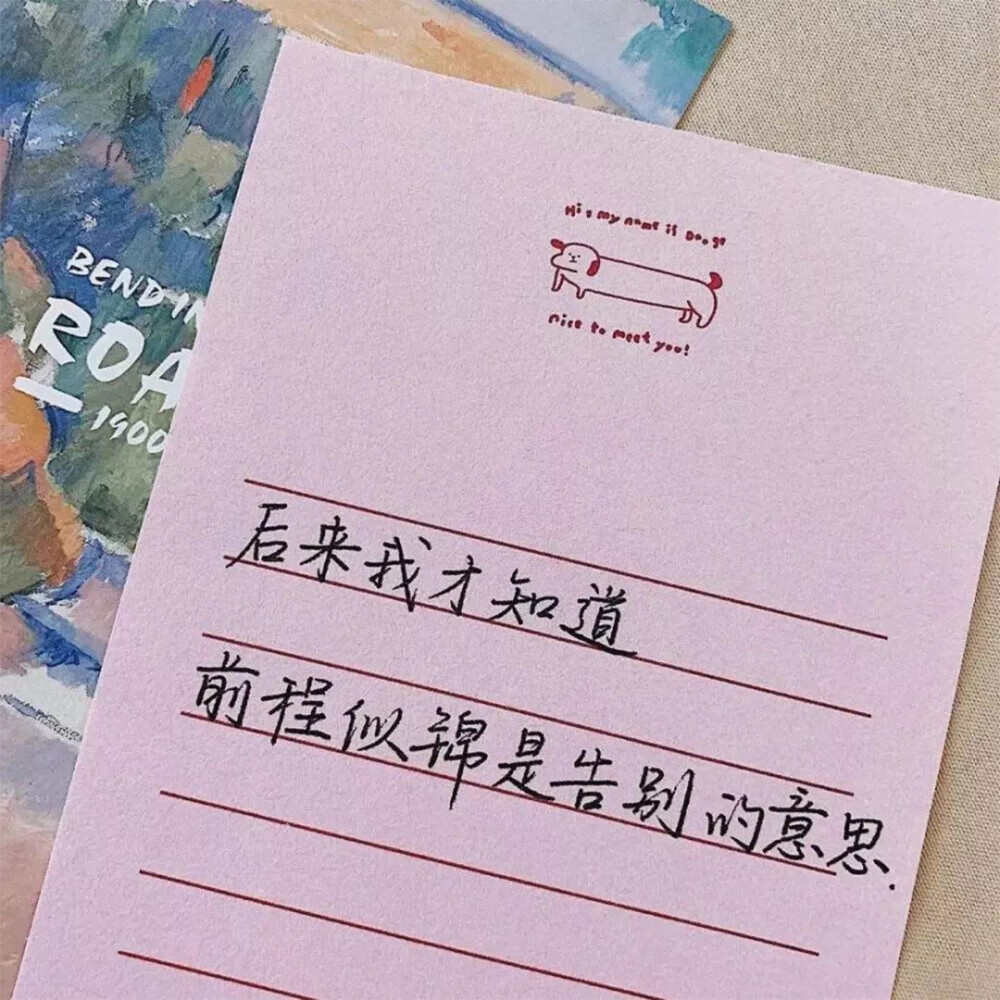 BENDIN
ROA
1900
Hi, my name is Dooge
nice to meet you!
后来我才知道
前程似锦是告别的意思.